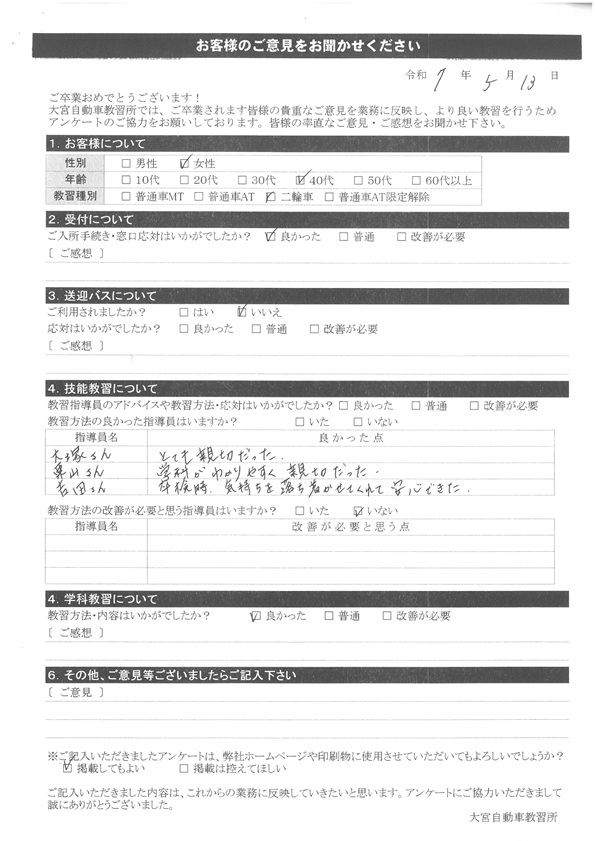 お客様のご意見をお聞かせください
令和 7 年 5 月 13 日
ご卒業おめでとうございます！
大宮自動車教習所では、ご卒業されます皆様の貴重なご意見を業務に反映し、より良い教習を行うため
アンケートのご協力をお願いしております。皆様の率直なご意見・ご感想をお聞かせ下さい。
1. お客様について
性別 □ 男性 ☑ 女性
年齢 □ 10代 □ 20代 □ 30代 ☑ 40代 □ 50代 □ 60代以上
教習種別 □ 普通車MT □ 普通車AT ☑ 二輪車 □ 普通車AT限定解除
2. 受付について
ご入所手続き・窓口応対はいかがでしたか？ ☑ 良かった □ 普通 □ 改善が必要
〔 ご感想 〕
3. 送迎バスについて
ご利用されましたか？ □ はい ☑ いいえ
応対はいかがでしたか？ □ 良かった □ 普通 □ 改善が必要
〔 ご感想 〕
4. 技能教習について
教習指導員のアドバイスや教習方法・応対はいかがでしたか？ □ 良かった □ 普通 □ 改善が必要
教習方法の良かった指導員はいますか？ □ いた □ いない
指導員名 良かった点
大塚さん とても親切だった.
栗山さん 学科がわかりやすく親切だった.
吉田さん 卒検時、気持ちを落ち着かせてくれて安心できた.
教習方法の改善が必要と思う指導員はいますか？ □ いた ☑ いない
指導員名 改善が必要と思う点
4. 学科教習について
教習方法・内容はいかがでしたか？ ☑ 良かった □ 普通 □ 改善が必要
〔 ご感想 〕
6. その他、ご意見等ございましたらご記入下さい
〔 ご意見 〕
※ご記入いただきましたアンケートは、弊社ホームページや印刷物に使用させていただいてもよろしいでしょうか？
☑ 掲載してもよい □ 掲載は控えてほしい
ご記入いただきました内容は、これからの業務に反映していきたいと思います。アンケートにご協力いただきまして
誠にありがとうございました。
大宮自動車教習所